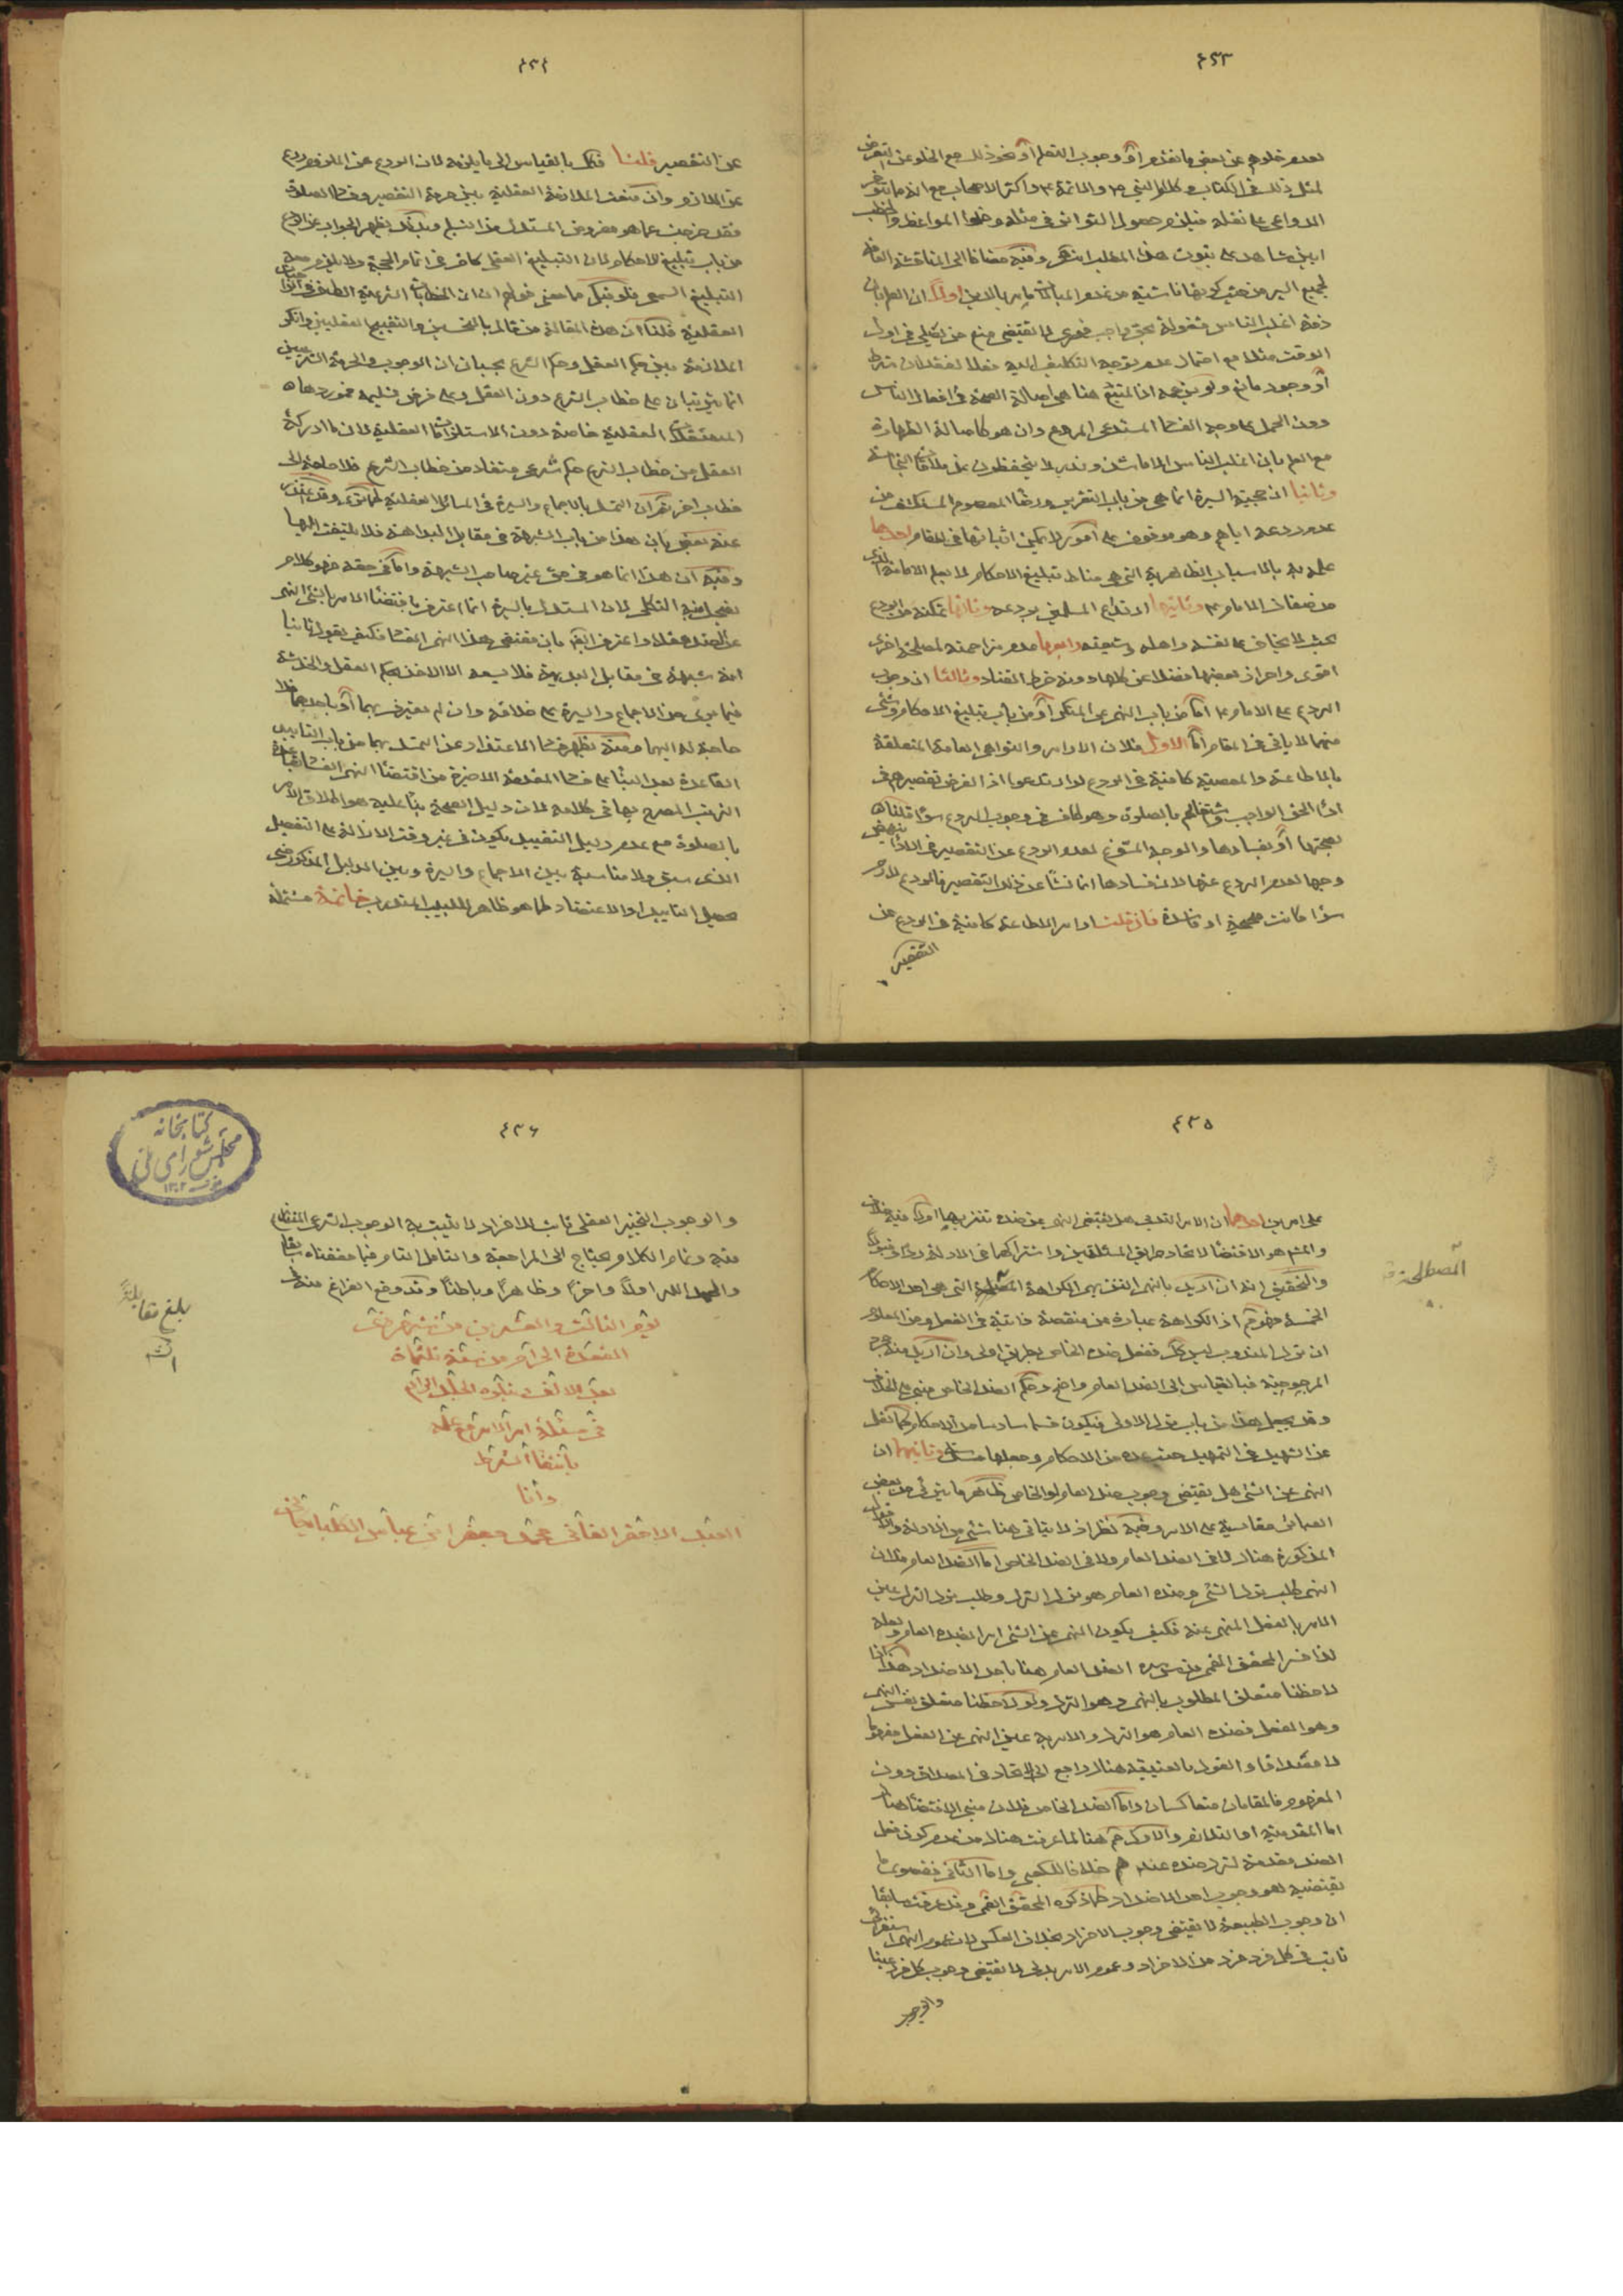 ٤٣٣
لعدم خلوهم عن بعض ما تقدم او وجوب التعلم او نحو ذلك مع الخلو عن التعرض
لمثل ذلك في الكتاب وكلام النبي ص والائمة ع واكثر الاصحاب مع انه مما تتوفر
الدواعي على نقله فيلزم حصول التواتر في مثله وخلو المواعظ والخطب
ابين شاهد على ثبوت هذا المطلب وفيه مضافا الى المناقشة
اولا ان العلم بان
ذمة اغلب الناس مشغولة بحق واجب فوري لا يقتضي منع من يصلي في اول
الوقت مثلا مع احتمال عدم توجه التكليف اليه فعلا لفقدان شرط
او وجود مانع ولو بزعمه اذ المتبع هنا هي اصالة الصحة في افعال الناس
دون الحمل على وجه الفساد المستدعي للردع وان هو كاصالة الطهارة
مع العلم بان اغلب الناس الا ما شذ وندر لا يتحفظون عن ملاقات النجاسة
وثانيا ان حجية السيرة انما هي من باب التقرير ورضا المعصوم المستكشف من
عدم ردعه اياهم وهو موقوف على امور لا يمكن اثباتها في المقام احدها
علمه به بالاسباب الظاهرية التي هي مناط تبليغ الاحكام لا بعلم الامامة الذي
من صفات الامام ع وثانيها ارتداع المسلمين بردعه وثالثها تمكنه من الردع
بحيث لا يخاف على نفسه واهله وشيعته ورابعها عدم مزاحمته لمصلحة اخرى
اقوى واحراز بعضها فضلا عن كلها دونه خرط القتاد وثالثا ان وجوب
الردع على الامام ع اما من باب النهي عن المنكر او من باب تبليغ الاحكام وشيء
منهما لا ياتي في المقام اما الاول فلان الاوامر والنواهي العامة المتعلقة
بالاطاعة والمعصية كافية في الردع لو ارتدعوا اذ الفرض تقصيرهم في
اداء الحق الواجب واشتغالهم بالصلوة وهو كاف في وجوب الردع سواء قلنا
بصحتها او بفسادها والوجه المسوغ لعدم الردع عن التقصير في الاداء ينهض
وجها لعدم الردع عنها لان فسادها انما نشا عن ذلك التقصير فالردع لازم
سواء كانت صحيحة او فاسدة فان قلت اوامر الاطاعة كافية في الردع عن
التقصير
٤٣٤
عن التقصير قلنا فكك بالقياس الى ما يلزمه لان الردع عن الملزوم ردع
عن اللازم وان منعت الملازمة العقلية بين حرمة التقصير وفساد الصلوة
فقد خرجت عما هو مفروض المستدل من التسليم وبذلك يظهر الجواب عن الردع
من باب تبليغ الاحكام لان التبليغ العقلي كاف في اتمام الحجة ولا يلزم معه
التبليغ السمعي فلو قيل ما معنى قولهم ان الخطابات الشرعية الطاف في الواجبات
العقلية قلنا ان هذه المقالة من قال بالتحسين والتقبيح العقليين وانكر
الملازمة بين حكم العقل وحكم الشرع بحسبان ان الوجوب والحرمة الشرعيين
انما يترتبان على خطاب الشرع دون العقل وعلى فرض تسليمه فموردها
المستقلات العقلية خاصة دون الاستلزامات العقلية لان ما ادركه
العقل من خطاب الشرع حكم شرعي مستفاد من خطاب الشرع فلا حاجة الى
خطاب اخر ثم ان التمسك بالاجماع والسيرة في المسائل العقلية كما ترى وقد يعتذر
عنه بعض بان هذا من باب الشبهة في مقابل البداهة فلا يلتفت اليها
وفيه ان هذا انما هو في حق غير صاحب الشبهة واما في حقه فهو كلام
يضحك منه الثكلى لان المستدل بالسيرة انما اعترف باقتضاء الامر بالشيء النهي
عن الضد عقلا واعترف ايضا بان مقتضى هذا النهي الفساد فكيف يقول ثانيا
انه شبهة في مقابل البديهة فلا يسعه الا الاخذ بحكم العقل والخدشة
فيما يرى من الاجماع والسيرة على خلافه وان لم يعترف بهما او باحدهما فلا
حاجة له اليهما ومنه يظهر فساد الاعتذار عن التمسك بهما من باب التاييد
بالصلوة مع عدم دليل التقييد يكون في غير وقت الازالة على التفصيل
الذي سبق ولا مناسبة بين الاجماع والسيرة وبين الدليل المذكور حتى
يحصل التاييد والاعتضاد كما هو ظاهر للبيب المتدرب خاتمة مشتملة
٤٣٥
على امرين احدهما ان الامر الندبي هل يقتضي النهي عن ضده تنزيها او لا فيه خلاف
والتحقيق انه ان اريد بالنهي التنزيهي الكراهة المصطلحة التي هي احد الاحكام
الخمسة فهو كم اذ الكراهة عبارة عن منقصة ذاتية في الفعل ومن المعلوم
ان ترك المندوب ليس كك ففعل ضده الخاص بطريق اولى وان اريد منه مجرد
المرجوحية فبالقياس الى الضد العام واضح وحكم الضد الخاص مبني على الخلاف
وقد يجعل هذا من باب ترك الاولى فيكون قسما سادسا من الاحكام كما نقل
عن الشهيد في التمهيد حيث عده من الاحكام وجعلها ستة وثانيهما ان
النهي عن الشيء هل يقتضي وجوب ضده العام او الخاص ظاهر ما يتراءى من بعض
العبائر مقايسته على الامر وفيه نظر اذ لا يتاتى هنا شيء من الادلة والاقوال
المذكورة هناك لا في الضد العام ولا في الضد الخاص اما الضد العام فلان
النهي طلب ترك الشيء وضده العام هو ترك الترك وطلب ترك الترك عين
الامر بالفعل المنهي عنه فكيف يكون النهي عن الشيء امرا بضده العام ولعله
لذا فسر المحقق القمي قدس سره الضد العام هنا باحد الاضداد هذا اذا
لاحظنا متعلق المطلوب بالنهي وهو الترك ولو لاحظنا متعلق نفس النهي
وهو الفعل فضده العام هو الترك والامر به عين النهي عن الفعل مفهوما
لا مصداقا والقول بالعينية هناك راجع الى الاتحاد في المصداق دون
المفهوم فالمقامان متعاكسان واما الضد الخاص فلان مبنى الاقتضاء هناك
اما المقدمية او التلازم والاول كم هنا لما عرفت هناك من عدم كون فعل
الضد مقدمة لترك ضده عندهم خلافا للكعبي واما الثاني فقصوى ما
يقتضيه هو وجوب احد الاضداد كما ذكره المحقق القمي وقد عرفت سابقا
ان وجوب الطبيعة لا يقتضي وجوب الافراد بخلاف العكس لان عموم النهي استغراقي
ثابت في كل فرد فرد من الافراد وعموم الامر بدلي لا يقتضي وجوب كل فرد عينا
والوجوب
المصطلحة
٤٣٦
والوجوب التخيير العقلي ثابت للافراد لا يثبت به الوجوب الشرعي المتنازع
فيه وتمام الكلام يحتاج الى المراجعة والتامل التام فيما حققناه سابقا
والحمد لله اولا واخرا وظاهرا وباطنا وقد وقع الفراغ منه في
يوم الثالث والعشرين من شهر
القعدة الحرام من سنة ثلثمائة
بعد الالف ويتلوه الجلد
في مسئلة امر الامر مع علمه
بانتفاء الشرط
وانا
العبد الاحقر الفاني محمد جعفر ابن عباس
بلغ مقابلة
كتابخانه
مجلس شورای ملی